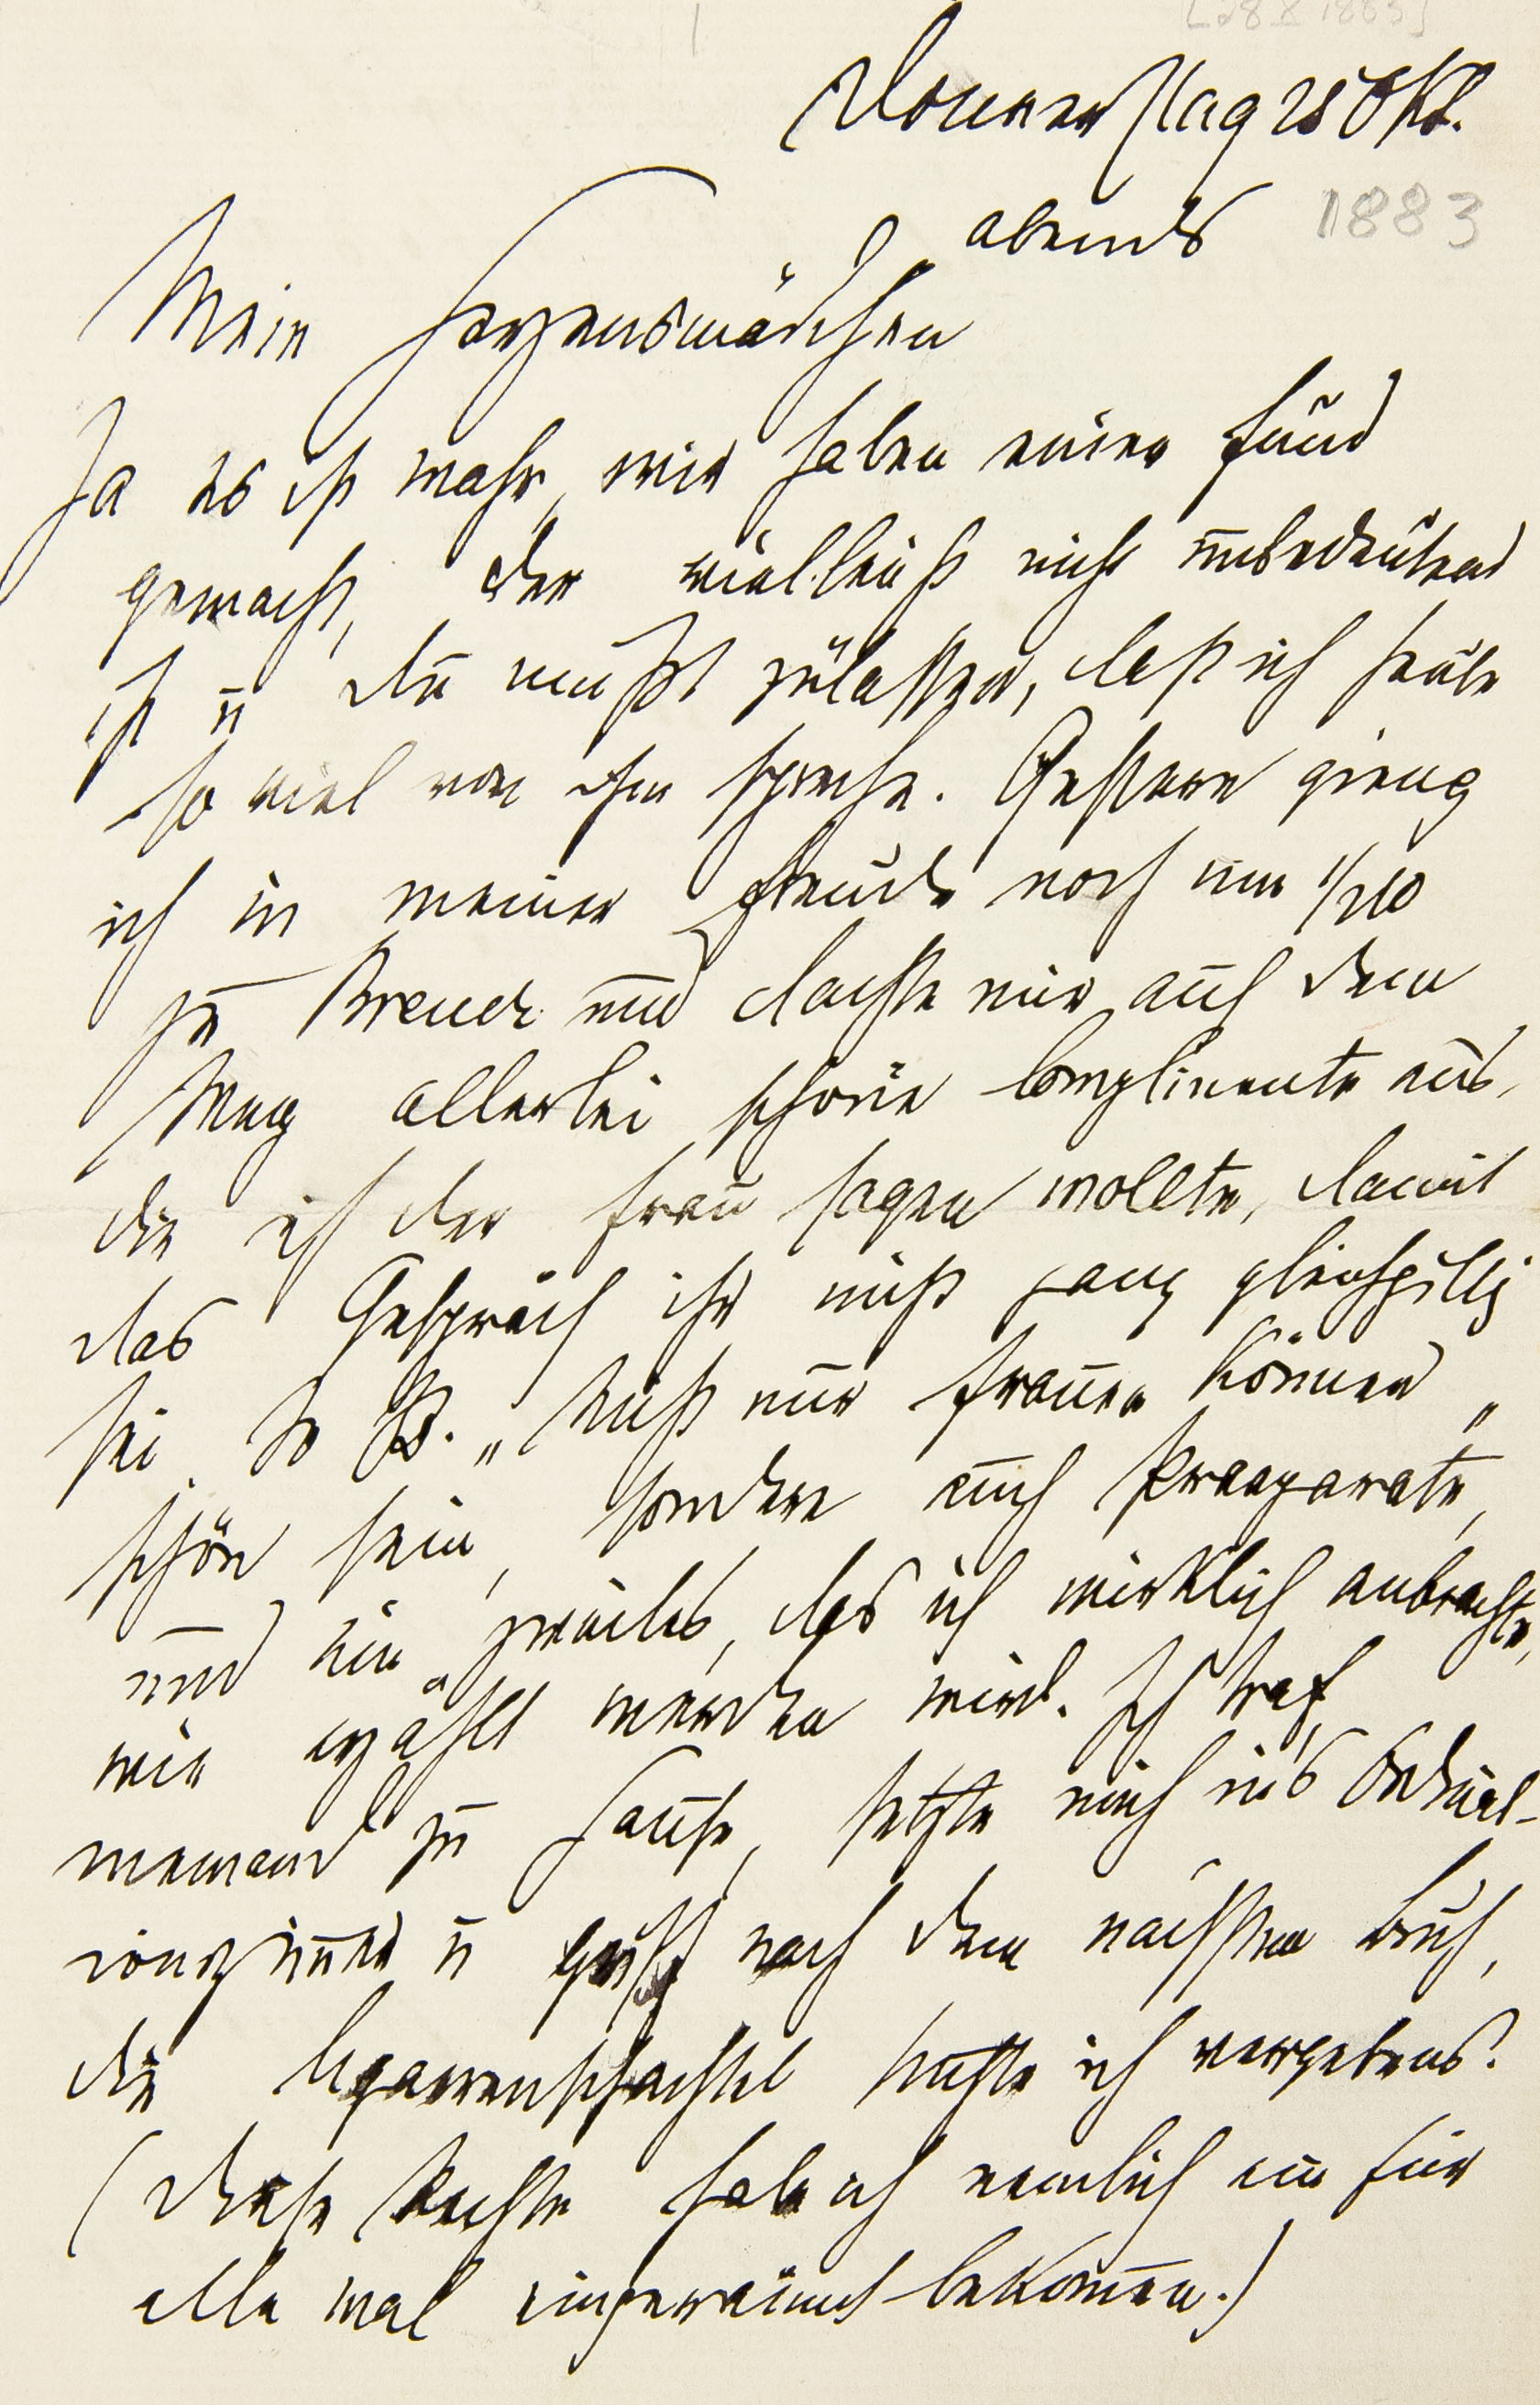 [28 X 1883]
Donnerstag 28 Okt.
abends 1883
Mein Herzensmädchen
Ja es ist wahr, wir haben einen Fund
gemacht, der vielleicht nicht unbedeutend
ist u Du mußt zulassen, daß ich heute
so viel von ihm spreche. Gestern gieng
ich in meiner Freude noch um 1/2 10
zu Breuer und dachte mir auf dem
Weg allerlei schöne Complimente aus,
die ich der Frau sagen wollte, damit
das Gespräch ihr nicht ganz gleichgiltig
sei. So z B. „Nicht nur Frauen können
schön sein, sondern auch Praeparate,“
und ein zweites, das ich wirklich anbrachte,
wie erzählt werden wird. Ich traf
niemand zu Hause, setzte mich in's Ordinat-
ionszimmer u griff nach dem nächsten Buch,
die Cigarrenschachtel suchte ich vergebens.
(Diese Rechte hab ich nemlich ein für
alle mal eingeräumt bekommen.)